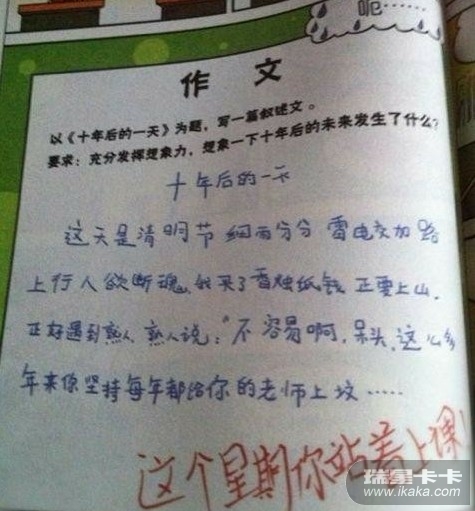 呃……
作文
以《十年后的一天》为题，写一篇叙述文。
要求：充分发挥想象力，想象一下十年后的未来发生了什么？
十年后的一天
这天是清明节 细雨分分 雷电交加 路
上行人欲断魂，我买了香烛纸钱 正要上山，
正好遇到熟人，熟人说："不容易啊，呆头，这么多
年来你坚持每年都给你的老师上坟……
这个星期你站着上课！
瑞星卡卡
www.ikaka.com